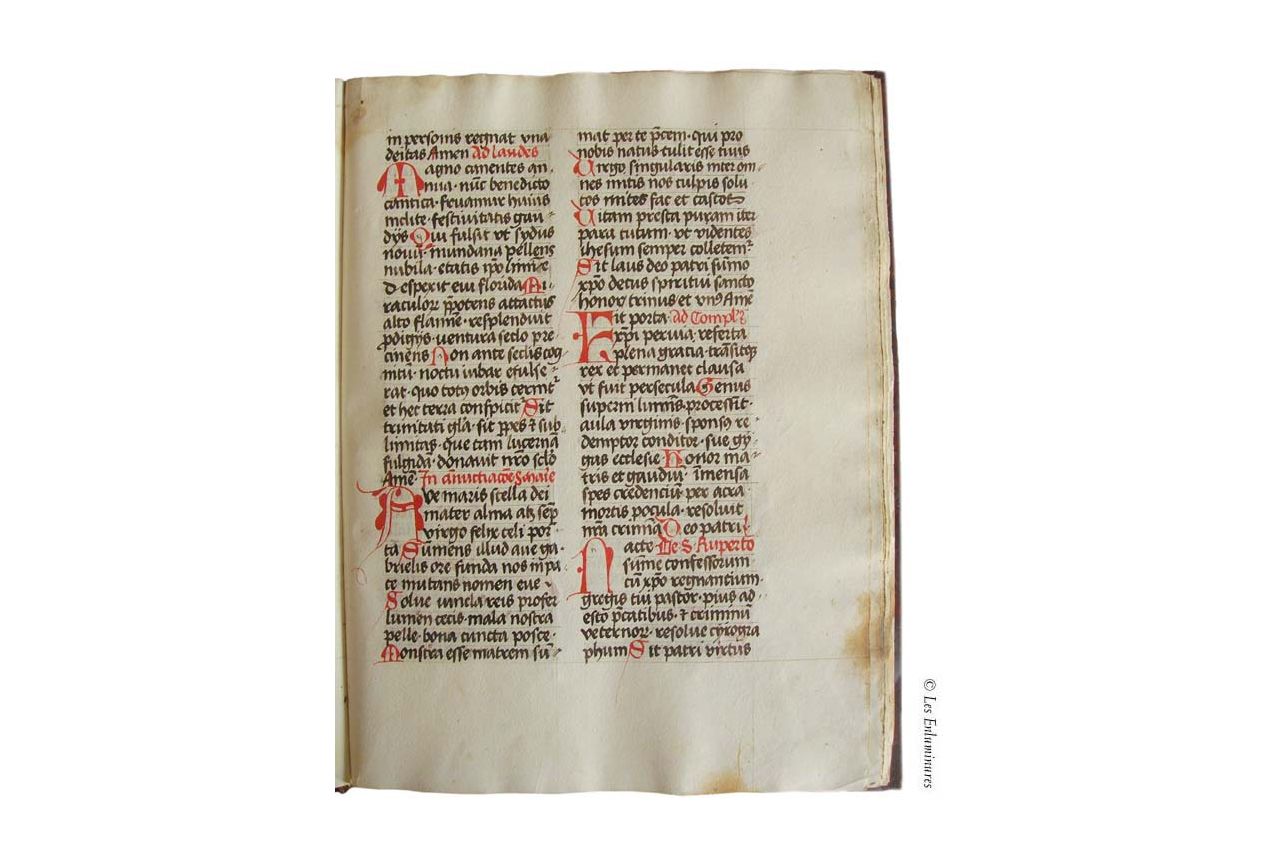 in personis regnat vna
deitas Amen Ad laudes
Magno canentes an
nua · nũc benedicto
cantica · fruamur huius
inclite · festiuitatis gau
dijs Qui fulsit vt sydus
nouũ · mundana pellens
nubila · etatis
desperit eui florida Mi
raculorꝝ p̃potens attactus
alto flamĩe · resplenduit
prodigijs · ventura seclo pre
cinens Non ante seclis cog
nitũ · noctu iubar efulse
rat · quo totꝰ orbis cernit᷑
et hec terra conspicit᷑ Sit
trinitati gl̃a · sit ꝑpes ⁊ sub
limitas · que tam lucernã
fulgidã · donauit nr̃o sclõ
Amẽ · In annũciacõe S marie
Aue maris stella dei
mater alma atqꝫ semꝑ
virgo felix celi por
ta Sumens illud aue ga
brielis ore funda nos in pa
ce mutans nomen eue
Solue vincla reis profer
lumen cecis · mala nostra
pelle · bona cuncta posce ·
Monstra esse matrem sũ
mat per te p̃cem · qui pro
nobis natus tulit esse tuus
Virgo singularis inter om
nes mitis nos culpis solu
tos mites fac et castos
Vitam presta puram iter
para tutum · vt videntes
ihesum semper colletem᷑
Sit laus deo patri sũmo
xp̃o decus spiritui sancto
honor trinus et vnꝰ Amẽ
Fit porta · ad Completoriũ
xp̃i peruia · referta
plena gracia · trãsitqꝫ
rex et permanet clausa
vt fuit per secula Genus
superni luminis · processit ·
aula virginis · sponsꝰ re
demptor conditor · sue gy
gas ecclesie Honor ma
tris et gaudiũ · ĩmensa
spes credenciũ · per atra
mortis pocula · resoluit
nr̃a crimina Deo patri
Nacto De S Ruperto
sũme confessorum
cũ xp̃o regnantium ·
gregis tui pastor · pius ad
esto p̃catibus · ⁊ criminũ
veternorꝝ · resolue cyrogra
phum Sit patri virtus
© Les Enluminures